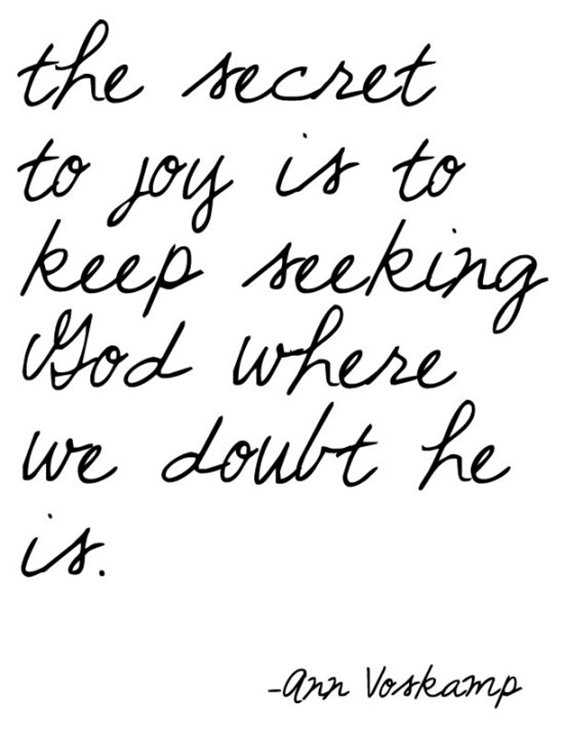 the secret
to joy is to
keep seeking
God where
we doubt he
is.
-Ann Voskamp